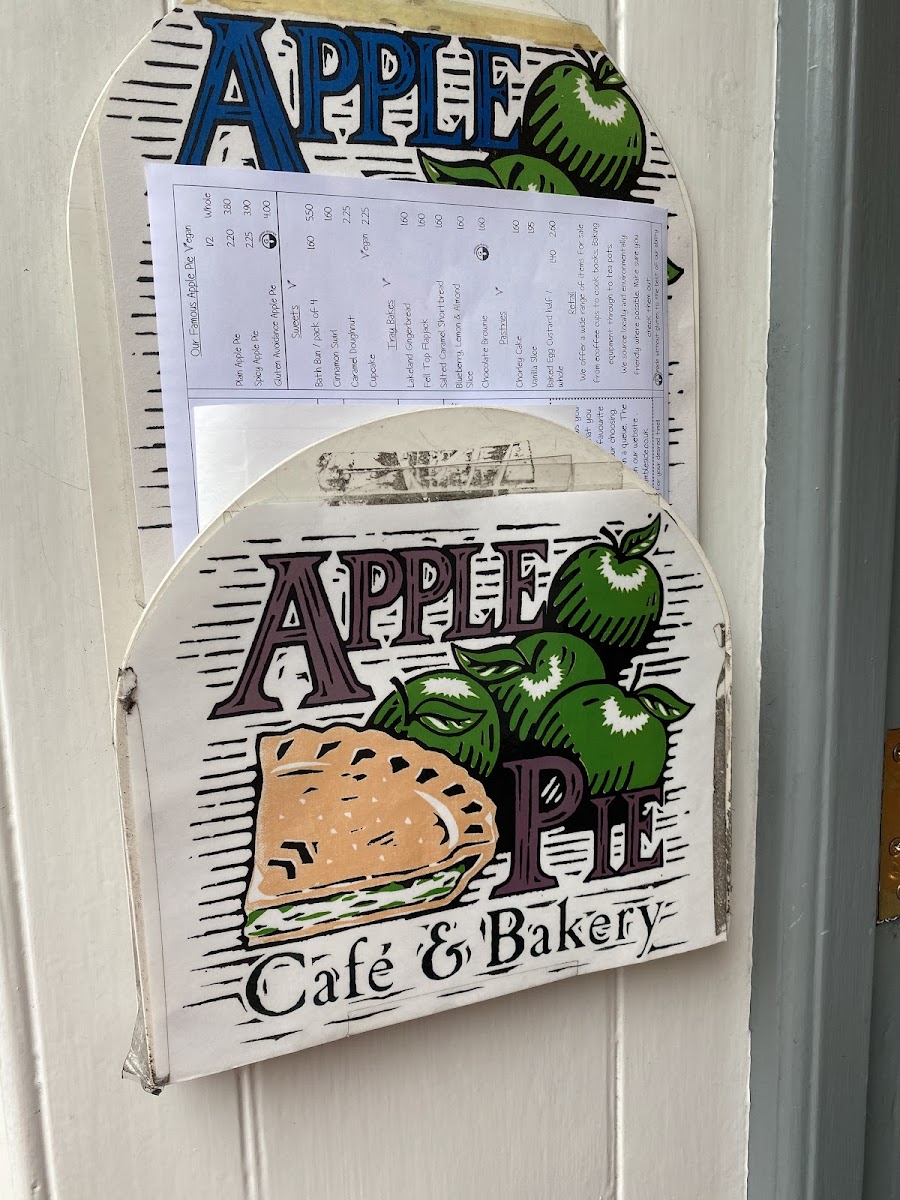 APPLE
Our Famous Apple Pie Vegan
1/2 Whole
Plain Apple Pie 2.20 3.80
Spicy Apple Pie 2.25 3.90
Gluten Avoidance Apple Pie 4.00
Sweets V
Bath Bun / pack of 4 1.60 5.50
Cinnamon Swirl 1.60
Caramel Doughnut 2.25
Cupcake Vegan 2.25
Tray Bakes V
Lakeland Gingerbread 1.60
Fell Top Flapjack 1.60
Salted Caramel Shortbread 1.60
Blueberry, Lemon & Almond 1.60
Slice
Chocolate Brownie 1.60
Pastries V
Chorley Cake 1.60
Vanilla Slice 1.95
Baked Egg Custard half / 1.40 2.60
whole
Retail
We offer a wide range of items for sale
from ecoffee cups to cook books. Baking
equipment through to tea pots.
We source locally and environmentally
friendly where possible. Make sure you
check them out.
made without gluten to the best of our ability
you
at you
favourite
choosing.
in a queue. The
n our website
mbleside.co.uk.
for your desired treat
APPLE
PIE
Café & Bakery